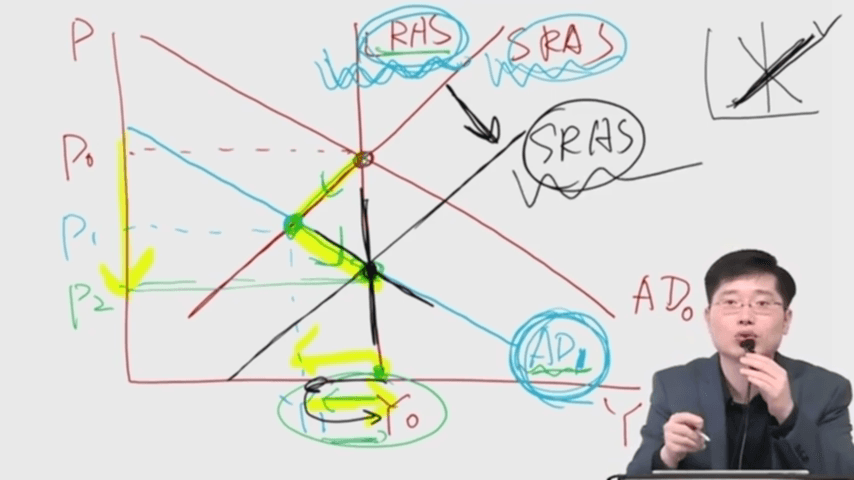 P
LRAS
SRAS
P₀
SRAS
P₁
P₂
AD₀
AD₁
Y₁
Y₀
Y